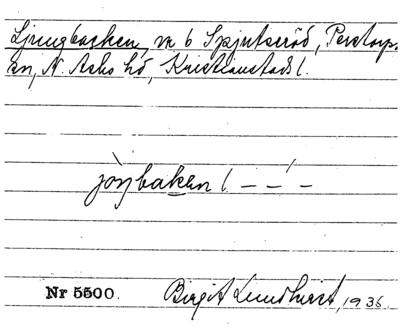 Ljungbacken, vr 6 Spjutseröd, Perstorps
sn, N. Åsbo hd, Kristianstads l.
jòŋbakən l. – –́ –
Nr 5500. Birgit Lundkvist, 1936